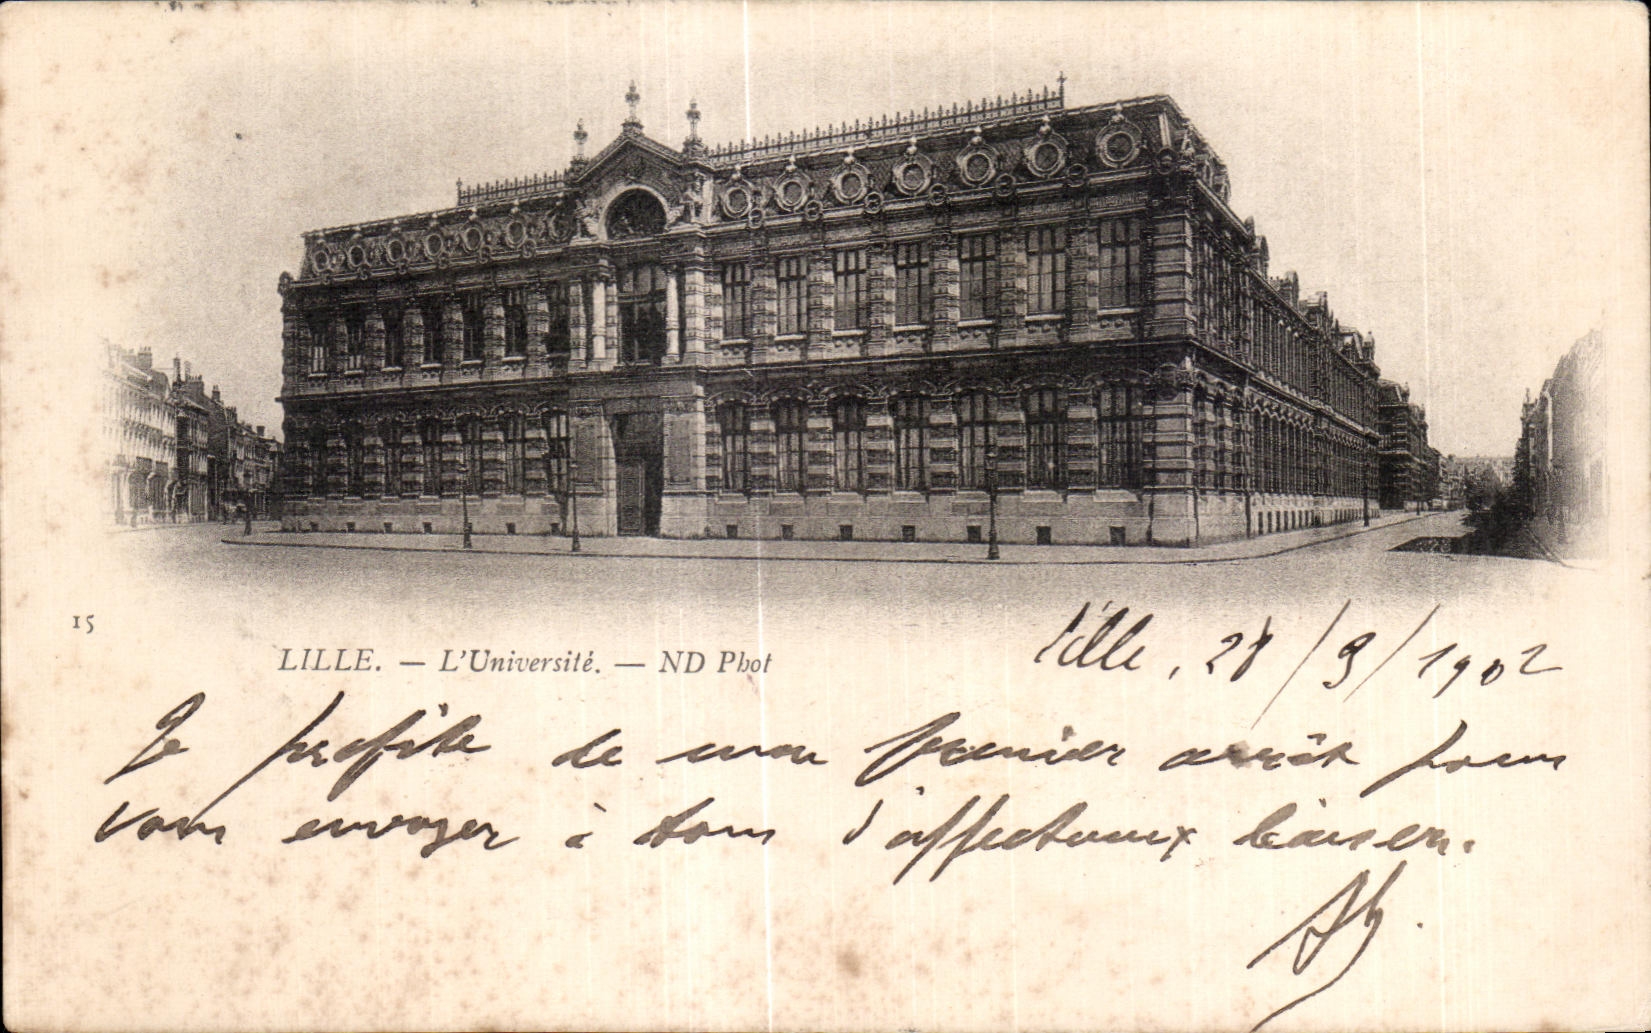 15
LILLE. — L'Université. — ND Phot
Lille, 28/9/1902
Je profite de mon premier arrêt pour
vous envoyer à tous d'affectueux baisers.